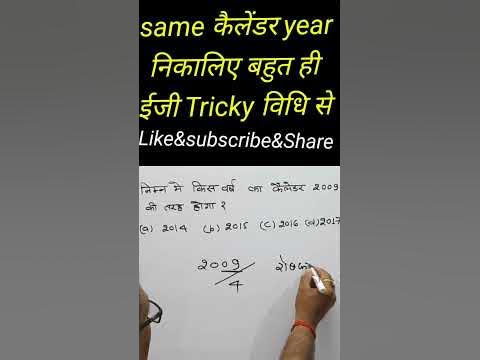 same कैलेंडर year
निकालिए बहुत ही
ईजी Tricky विधि से
Like&subscribe&Share
निम्न मे किस वर्ष का कैलेंडर 2009
की तरह होगा ?
(a) 2014 (b) 2015 (c) 2016 (d) 2017
2009
4